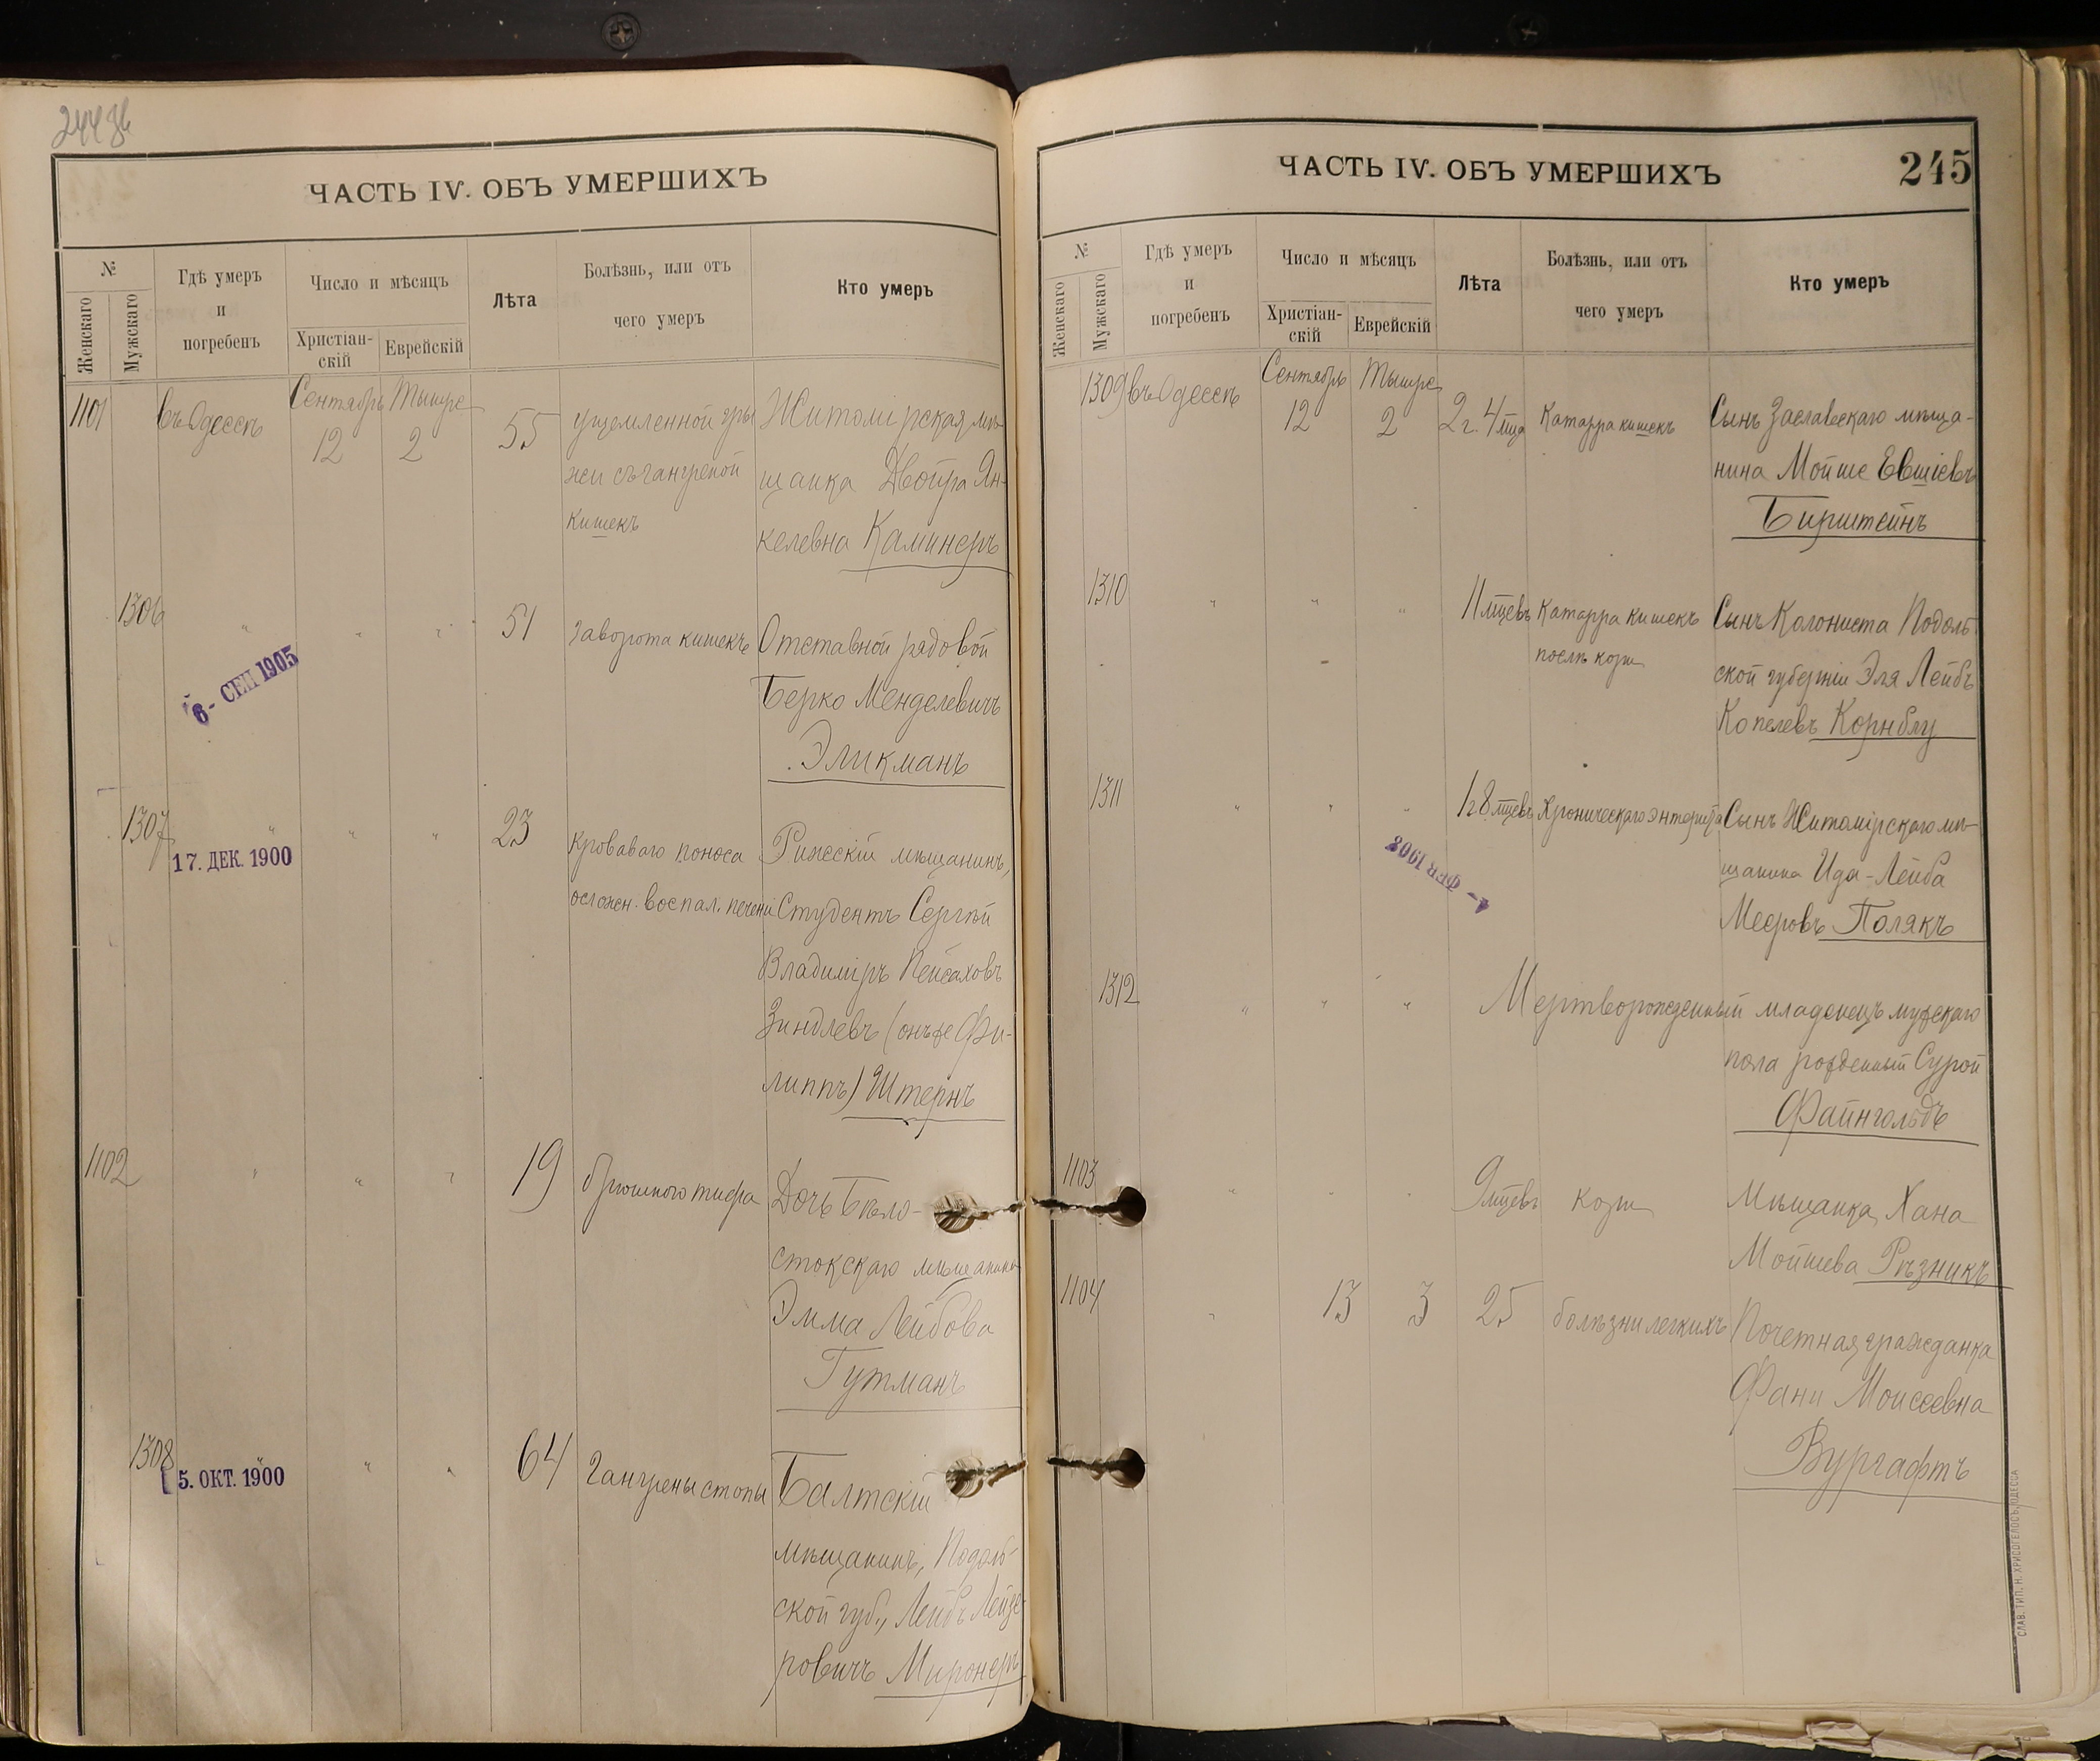 244 об
ЧАСТЬ IV. ОБЪ УМЕРШИХЪ
№
Женскаго
Мужскаго
Гдѣ умеръ
и
погребенъ
Число и мѣсяцъ
Христіан-
скій
Еврейскій
Лѣта
Болѣзнь, или отъ
чего умеръ
Кто умеръ
1101
въ Одессѣ
Сентябрь
12
Тышре
2
55
ущемленной гры
жи съ гангреной
кишекъ
Житомірская мѣ-
щанка Двойра Ян-
келевна Каминеръ
1306
" " "
6- СЕН 1905
51
заворота кишекъ
Отставной рядовой
Берко Менделевичъ
Эликманъ
1307
" " "
17. ДЕК. 1900
23
кроваваго поноса
осложн. воспал. печени
Рижскій мѣщанинъ,
Студентъ Сергѣй
Владиміръ Пейсаховъ
Зинделевъ (онъ же Фи-
липпъ) Штернъ
1102
" " "
19
брюшного тифа
Дочь Бѣло-
стокскаго мѣщанина
Эмма Лейбова
Гутманъ
1308
" " "
5. ОКТ. 1900
64
Гангрены стопы
Балтскій
мѣщанинъ, Подоль-
ской губ., Лейбъ Лейзе-
ровичъ Миронеръ
ЧАСТЬ IV. ОБЪ УМЕРШИХЪ
245
№
Женскаго
Мужскаго
Гдѣ умеръ
и
погребенъ
Число и мѣсяцъ
Христіан-
скій
Еврейскій
Лѣта
Болѣзнь, или отъ
чего умеръ
Кто умеръ
1309
въ Одессѣ
Сентябрь
12
Тышре
2
2 г. 4 мца
Катарра кишекъ
Сынъ Заславскаго мѣща-
нина Мойше Евшіевъ
Бирштейнъ
1310
" " "
11 мцевъ
Катарра кишекъ
послѣ кори
Сынъ Колониста Подоль-
ской губерніи Эля Лейбъ
Копелевъ Корнблу
1311
" " "
1 г 8 мцевъ
Хроническаго энтерита
4- ФЕВ 1908
Сынъ Житомірскаго мѣ-
щанина Ида-Лейба
Мееровъ Полякъ
1312
" " "
Мертворожденный младенецъ мужскаго
пола рожденный Сурой
Файнгольдъ
1103
" " "
9 мцевъ
кори
Мѣщанка Хана
Мойшева Рѣзникъ
1104
"
13
3
25
болѣзни легкихъ
Почетная гражданка
Фани Моисеевна
Вургафтъ
СЛАВ. ТИП. Н. ХРИСОГЕЛОСЪ, ОДЕССА